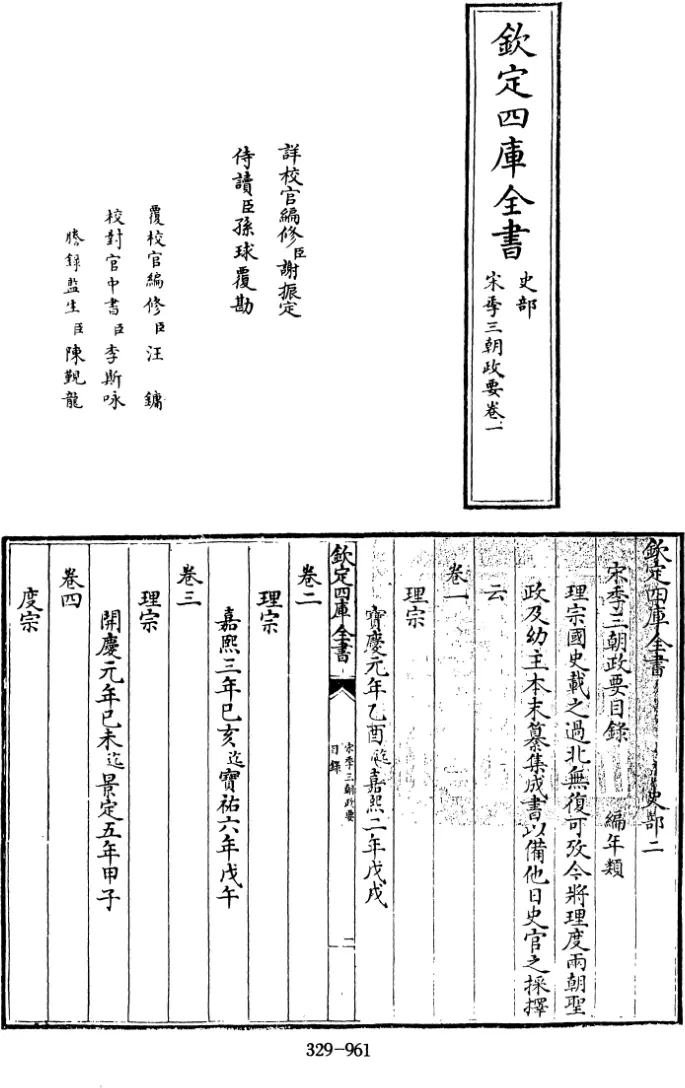 欽定四庫全書
史部
宋季三朝政要卷一
詳校官編修臣謝振定
侍讀臣孫球覆勘
覆校官編修臣汪鏞
校對官中書臣李斯咏
謄錄監生臣陳觀龍
欽定四庫全書 史部二
宋季三朝政要目錄 編年類
理宗國史載之過北無復可攷今將理度兩朝聖
政及幼主本末纂集成書以備他日史官之採擇
云
卷一
理宗
寶慶元年乙酉迄嘉熙二年戊戌
欽定四庫全書
宋季三朝政要
目錄
二
卷二
理宗
嘉熙三年己亥迄寶祐六年戊午
卷三
理宗
開慶元年己未迄景定五年甲子
卷四
度宗
329-961